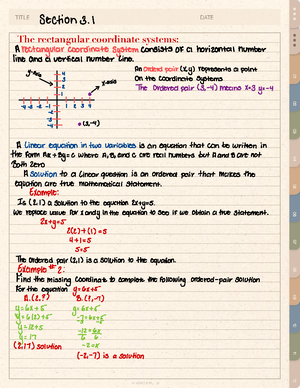 TITLE Section 3.1 DATE
The rectangular coordinate systems:
A rectangular coordinate system consists of a horizontal number
line and a vertical number line.
y-axis
x-axis
(3,-4)
An Ordered pair (x,y) represents a point
On the coordinate systems
The Ordered pair (3,-4) means x=3 y=-4
A Linear equation in two variables is an equation that can be written in
the form Ax + By = C where A, B, and C are real numbers but A and B are not
Both Zero
A Solution to a Linear question is an ordered pair that makes the
equation are true mathematical statement.
Example:
Is (2,1) a solution to the equation 2x+y=5.
We replace value for x and y in the equation to see if we obtain a true statement.
2x+y=5
2(2)+(1)=5
4+1=5
5=5
The ordered pair (2,1) is a solution to the equation.
Example # 2:
Find the missing Coordinate to complete the following ordered-pair solution
for the equation y=6x+5
A. (2,?) B. (?,-7)
y=6x+5 y=6x+5
y=6(2)+5 -7=6x+5
y=12+5 -12=6x
y=17 6 6
(2,17) solution -2=x
(-2,-7) is a solution